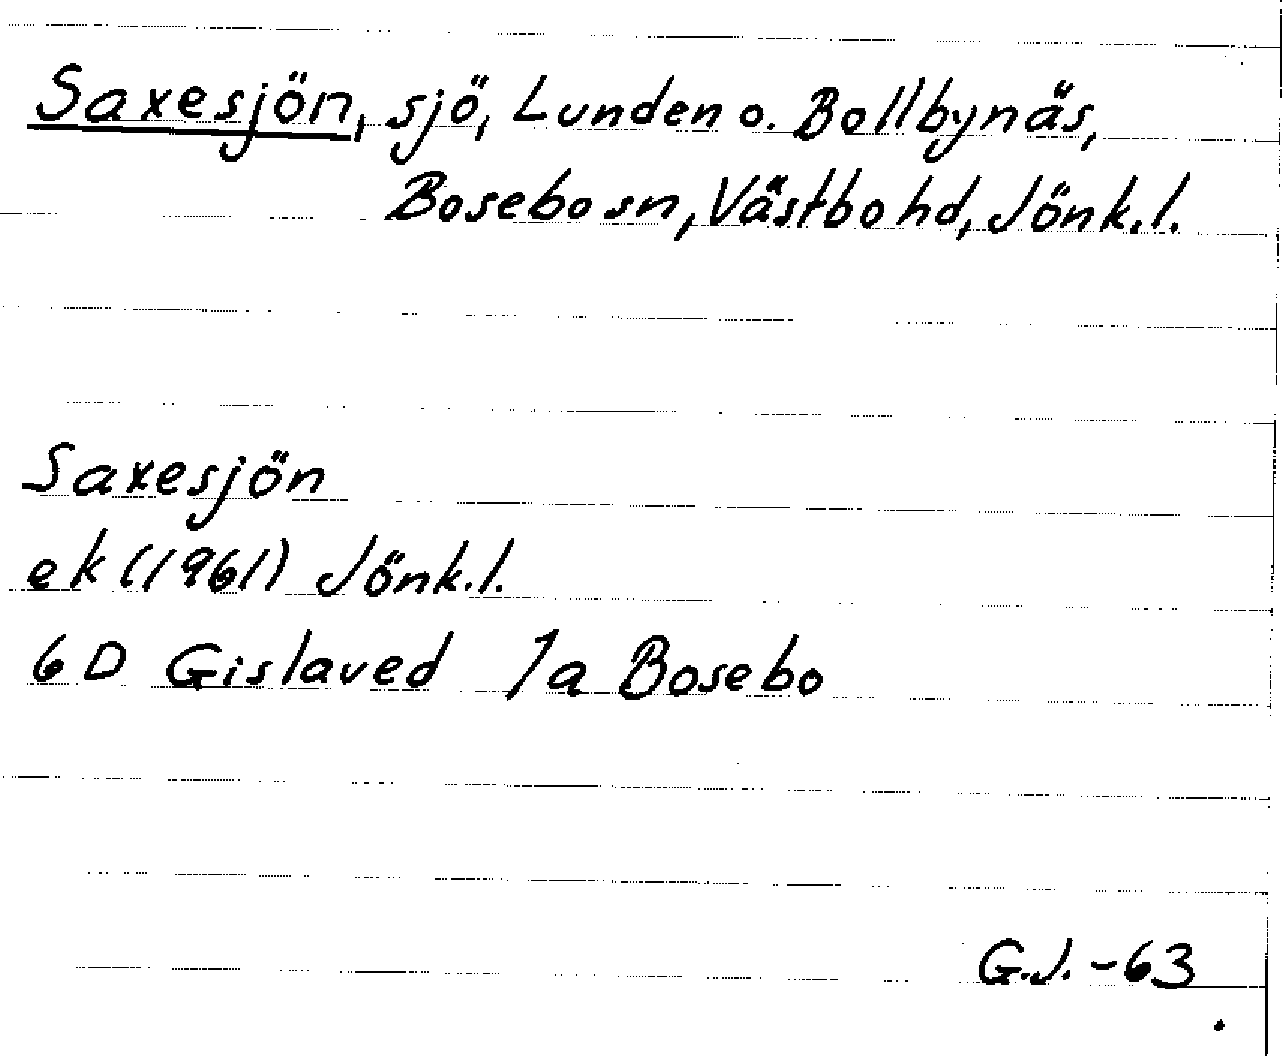 Saxesjön, sjö, Lunden o. Bollbynäs,
Bosebo sn, Västbo hd, Jönk.l.
Saxesjön
ek (1961) Jönk.l.
6 D Gislaved 1a Bosebo
G.J. -63